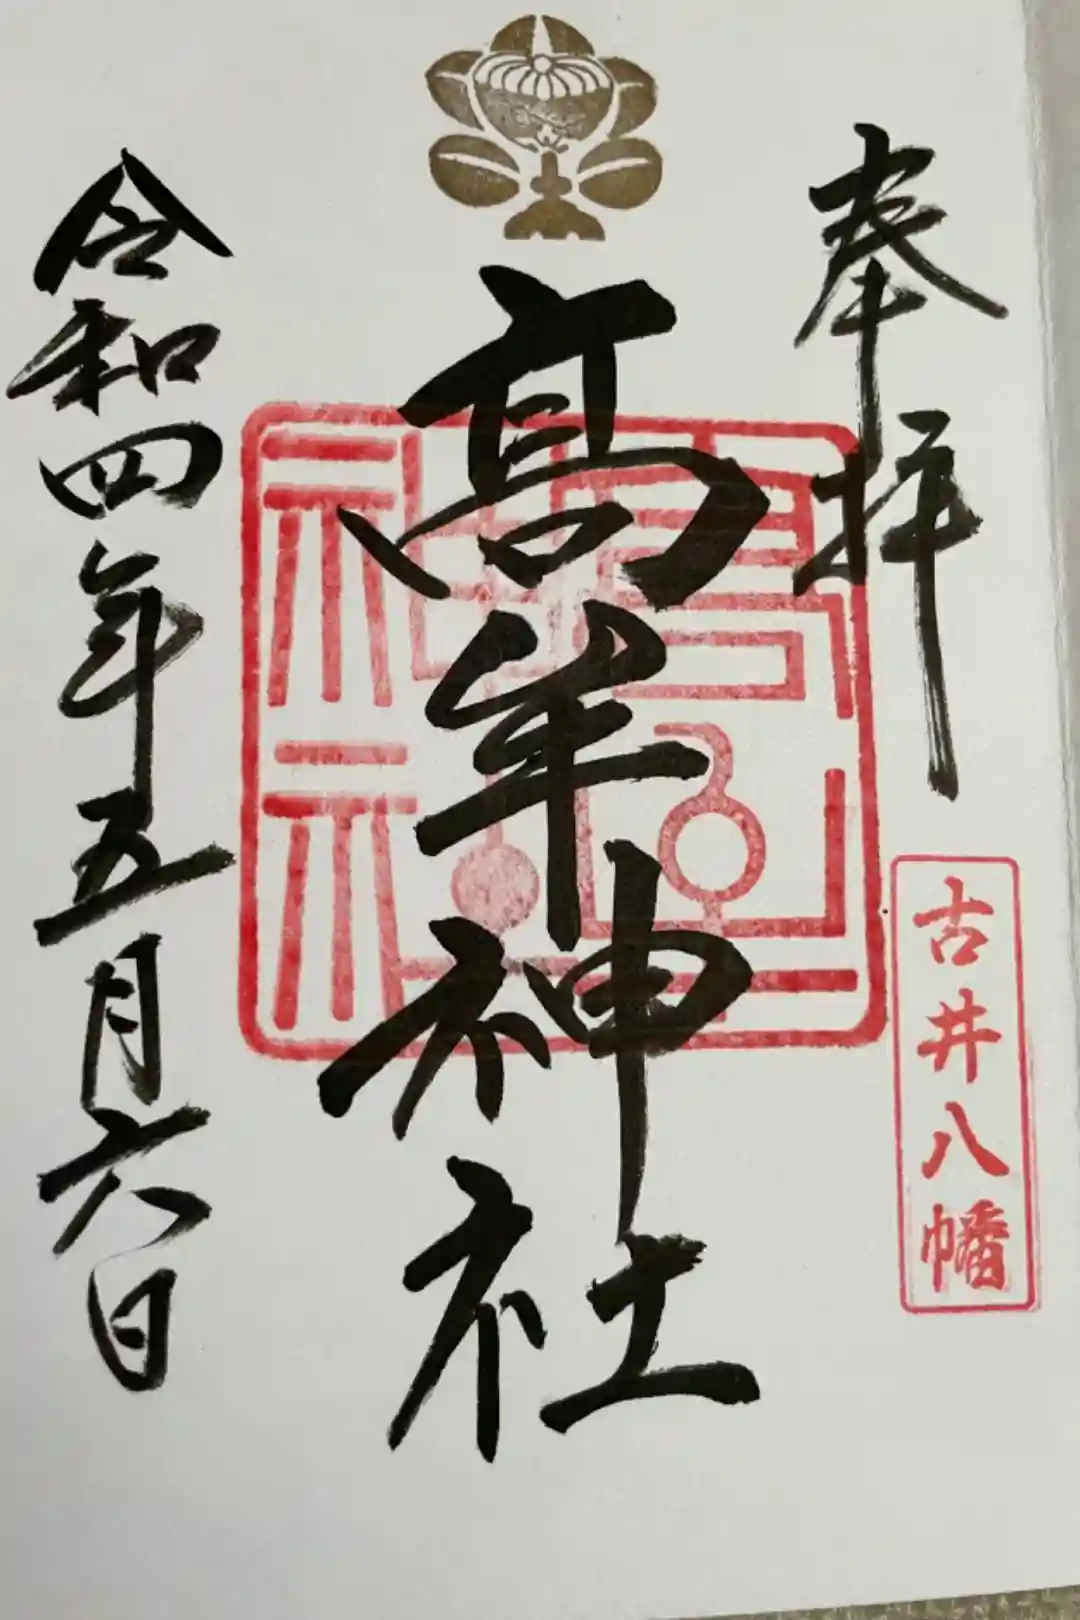 奉拝
古井八幡
髙牟神社
高牟神社
令和四年五月六日